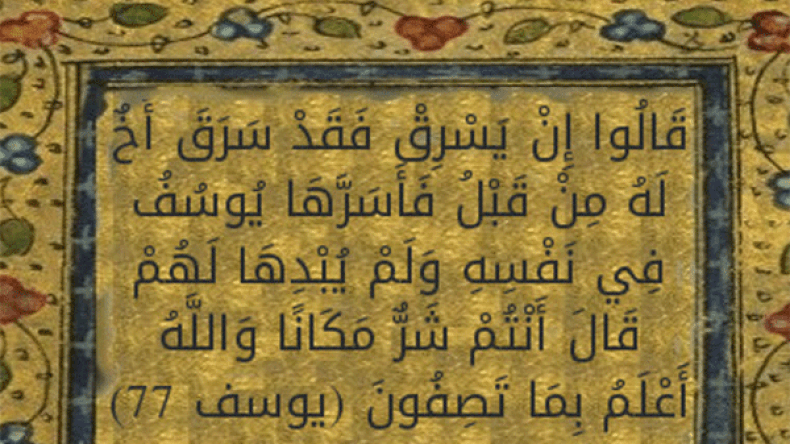 قَالُوا إِنْ يَسْرِقْ فَقَدْ سَرَقَ أَخٌ
لَهُ مِنْ قَبْلُ فَأَسَرَّهَا يُوسُفُ
فِي نَفْسِهِ وَلَمْ يُبْدِهَا لَهُمْ
قَالَ أَنْتُمْ شَرٌّ مَكَانًا وَاللَّهُ
أَعْلَمُ بِمَا تَصِفُونَ (يوسف 77)